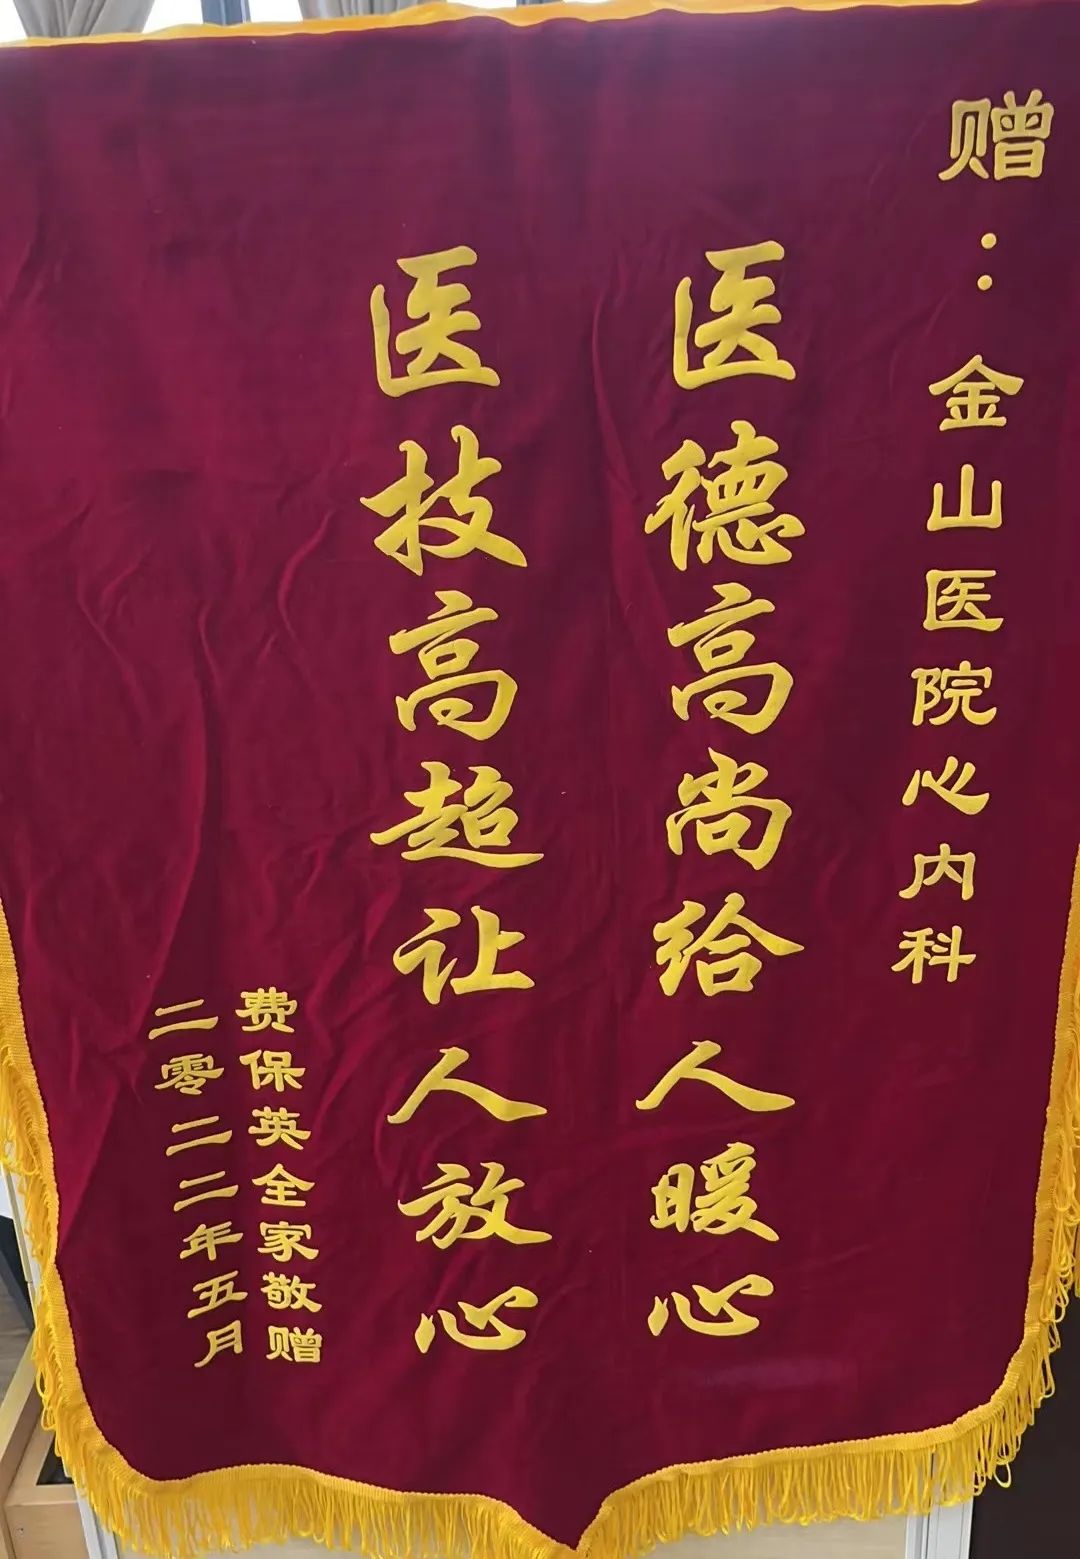 赠：金山医院心内科
医德高尚给人暖心
医技高超让人放心
费保英全家敬赠
二零二二年五月